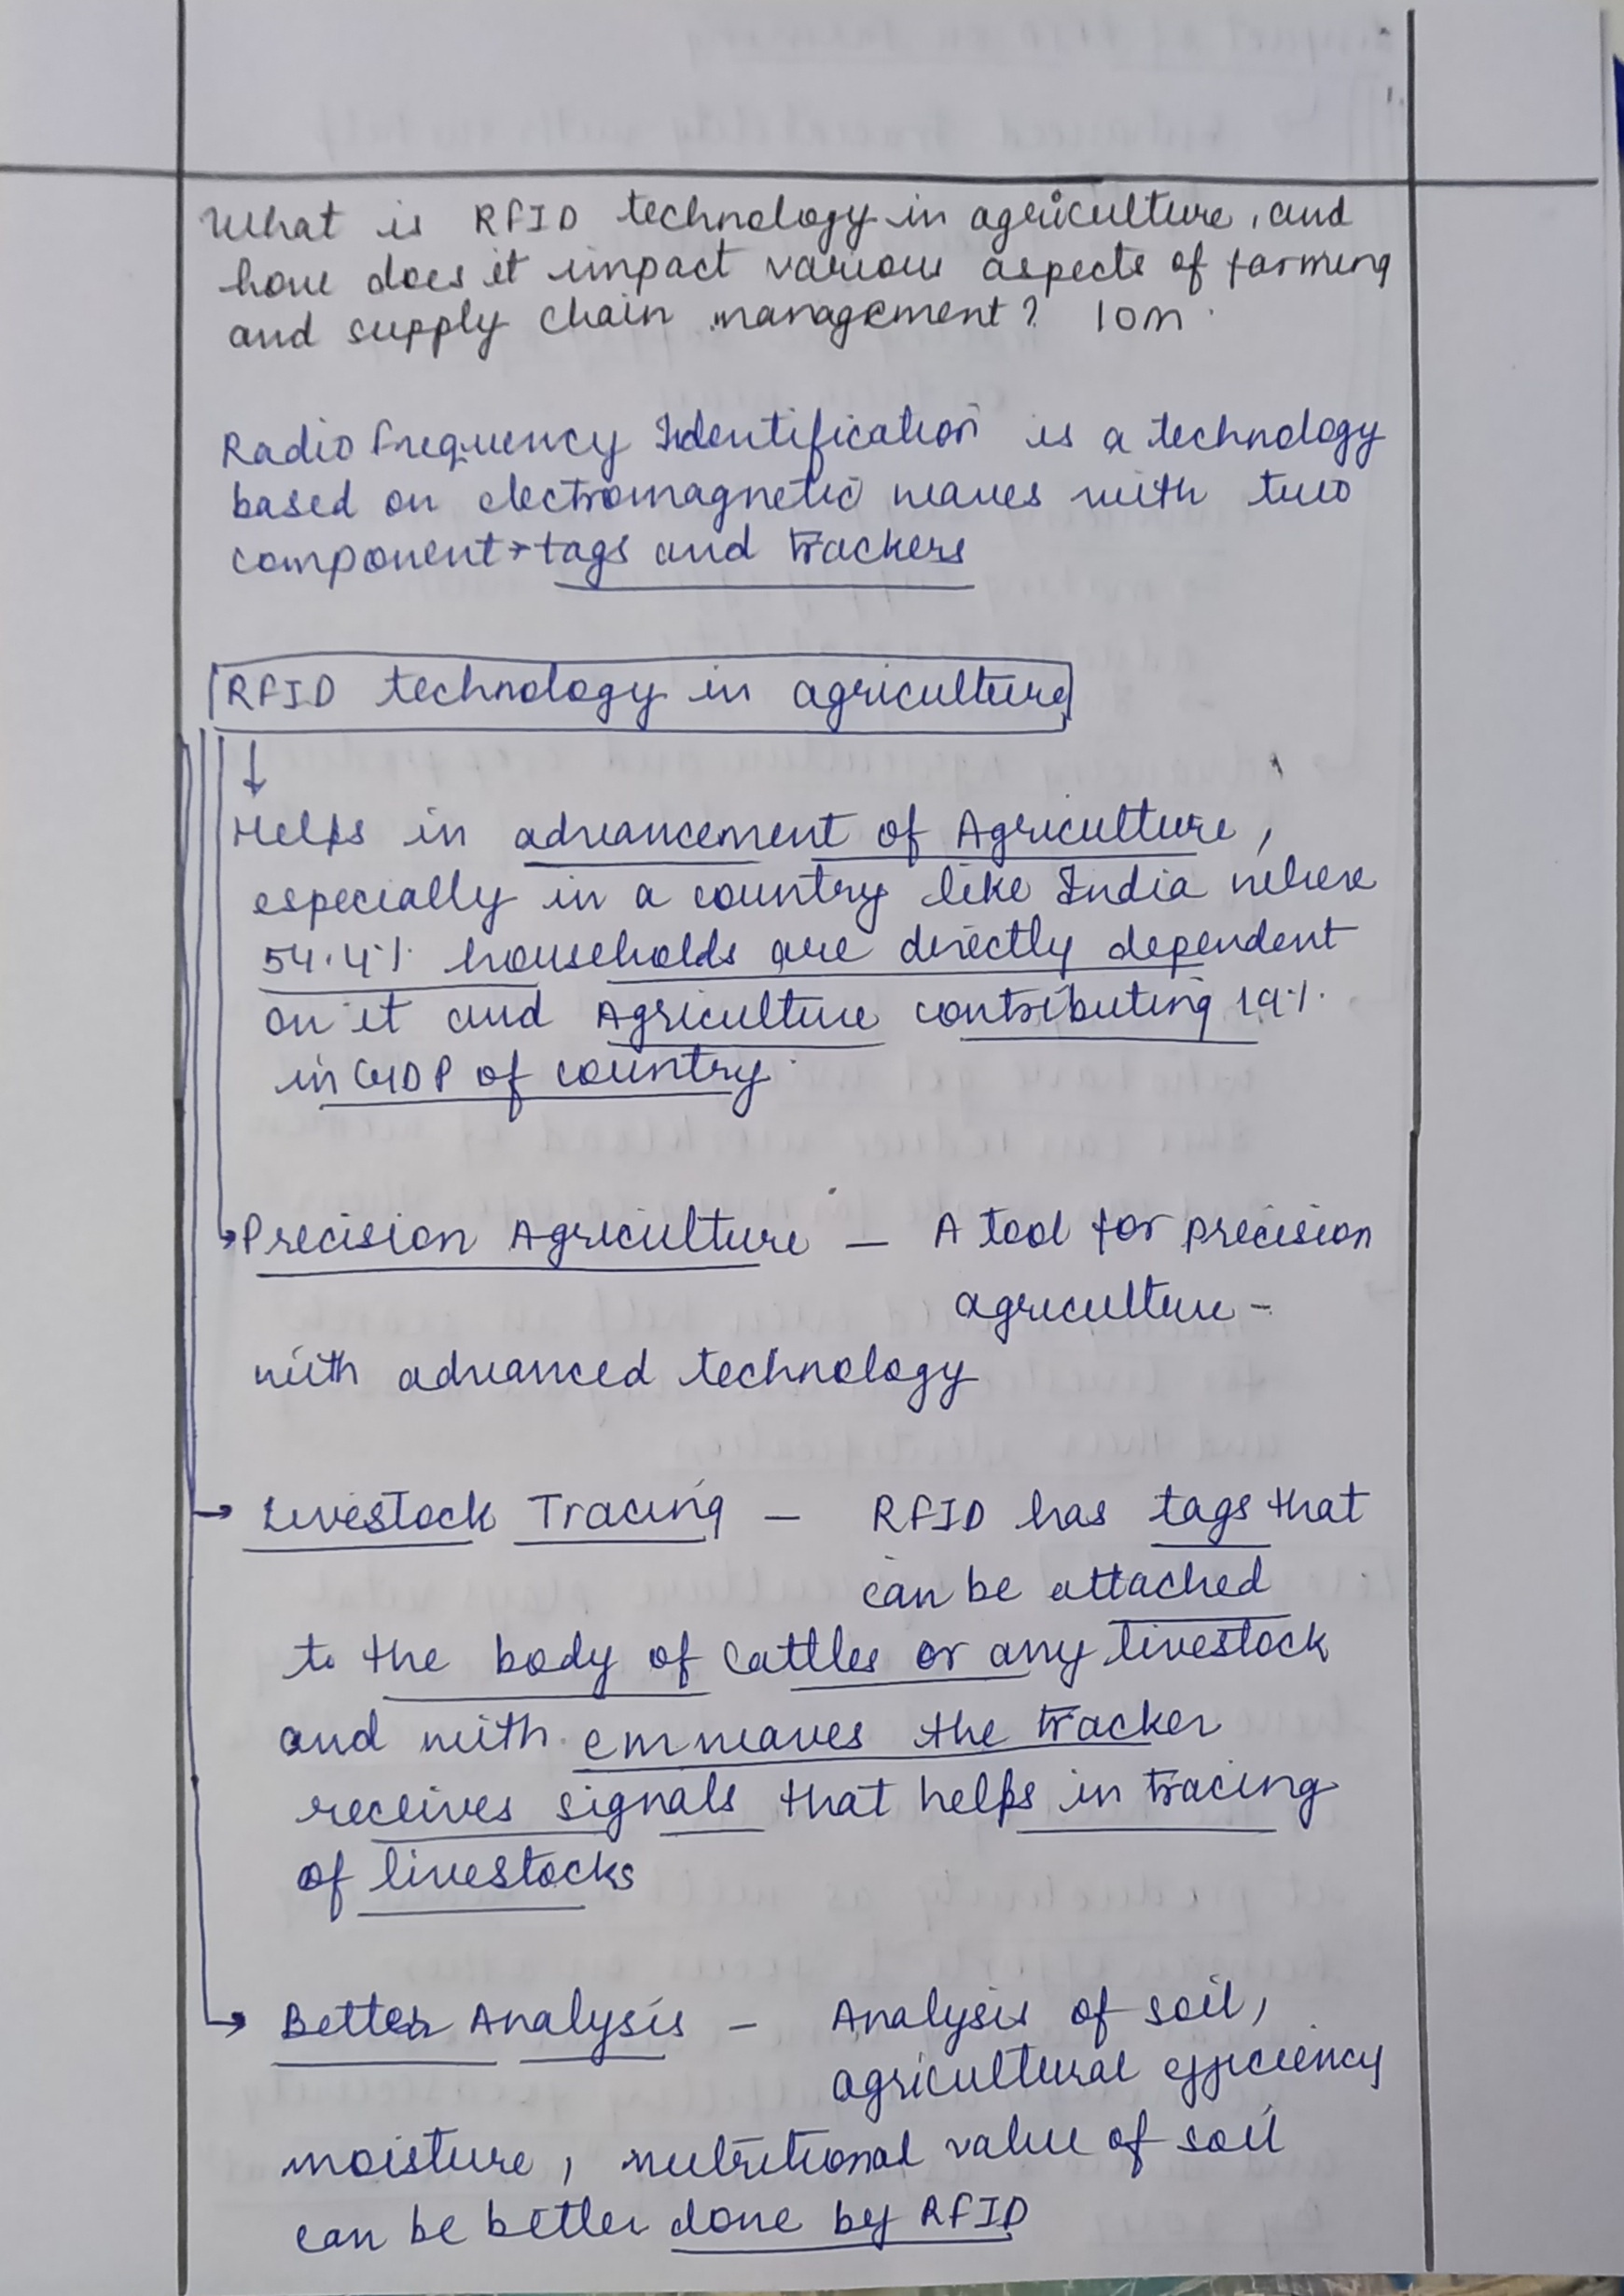 What is RFID technology in agriculture, and
how does it impact various aspects of farming
and supply chain management? 10m.
Radio frequency Identification is a technology
based on electromagnetic waves with two
component → tags and trackers
RFID technology in agriculture
Helps in advancement of Agriculture,
especially in a country like India where
54.4% households are directly dependent
on it and Agriculture contributing 19%
in GDP of country.
Precision Agriculture – A tool for precision
agriculture -
with advanced technology
Livestock Tracing – RFID has tags that
can be attached
to the body of cattles or any livestock
and with em waves the tracker
receives signals that helps in tracing
of livestocks
Better Analysis – Analysis of soil,
agricultural efficiency
moisture, nutritional value of soil
can be better done by RFID